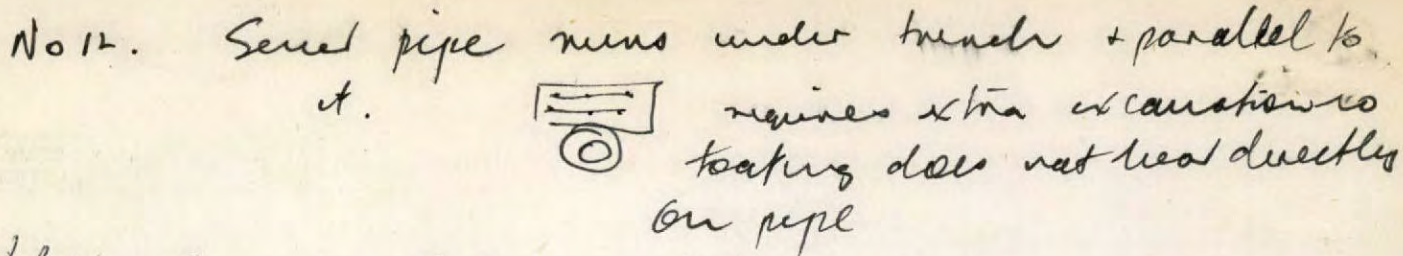 No 12. Sewer pipe runs under trench + parallel to
it. requires extra excavation so
footing does not bear directly
on pipe